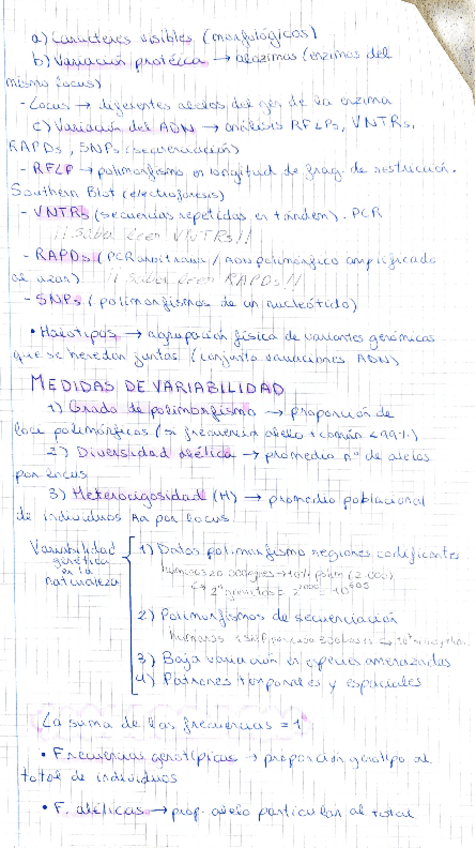 a) Caracteres visibles (morfológicos)
b) Variación protéica → alozimas (enzimas del
mismo locus)
- Locus → diferentes alelos del gen de la enzima
c) Variación del ADN → análisis RFLPs, VNTRs,
RAPDs, SNPs (secuenciación)
- RFLP → polimorfismo en longitud de frag. de restricción.
Southern Blot (electroforesis)
- VNTRs (secuencias repetidas en tándem). PCR
¡¡Saber leer VNTRs!!
- RAPDs (PCR arbitraria / ADN polimórfico amplificado
al azar) ¡¡Saber leer RAPDs!!
- SNPs (polimorfismos de un nucleótido)
• Haplotipos → agrupación física de variantes genómicas
que se heredan juntas (conjunto variaciones ADN)
MEDIDAS DE VARIABILIDAD
1) Grado de polimorfismo → proporción de
loci polimórficos (si frecuencia alelo + común < 99%)
2) Diversidad alélica → promedio nº de alelos
por locus
3) Heterocigosidad (H) → promedio poblacional
de individuos Aa por locus.
Variabilidad
genética
en la
naturaleza
1) Datos polimorfismo regiones codificantes
humanos 20 000 genes → 10%
2) Polimorfismos de secuenciación
humanos
3) Baja variación en especies amenazadas
4) Patrones temporales y espaciales
La suma de las frecuencias = 1
• Frecuencias genotípicas → proporción genotipo al
total de individuos
• F. alélicas → prop. alelo particular al total